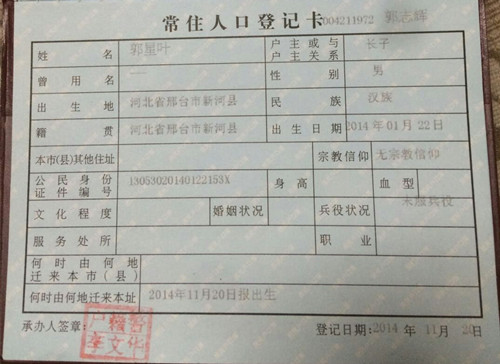 常住人口登记卡 004211972 郭志辉
姓名 郭星叶 户主或与户主关系 长子
曾用名 — 性别 男
出生地 河北省邢台市新河县 民族 汉族
籍贯 河北省邢台市新河县 出生日期 2014年01月22日
本市(县)其他住址 宗教信仰 无宗教信仰
公民身份证件编号 13053020140122153X 身高 血型
文化程度 婚姻状况 兵役状况 未服兵役
服务处所 职业
何时由何地迁来本市(县)
何时由何地迁来本址 2014年11月20日报出生
承办人签章: 李文化 登记日期:2014年11月20日